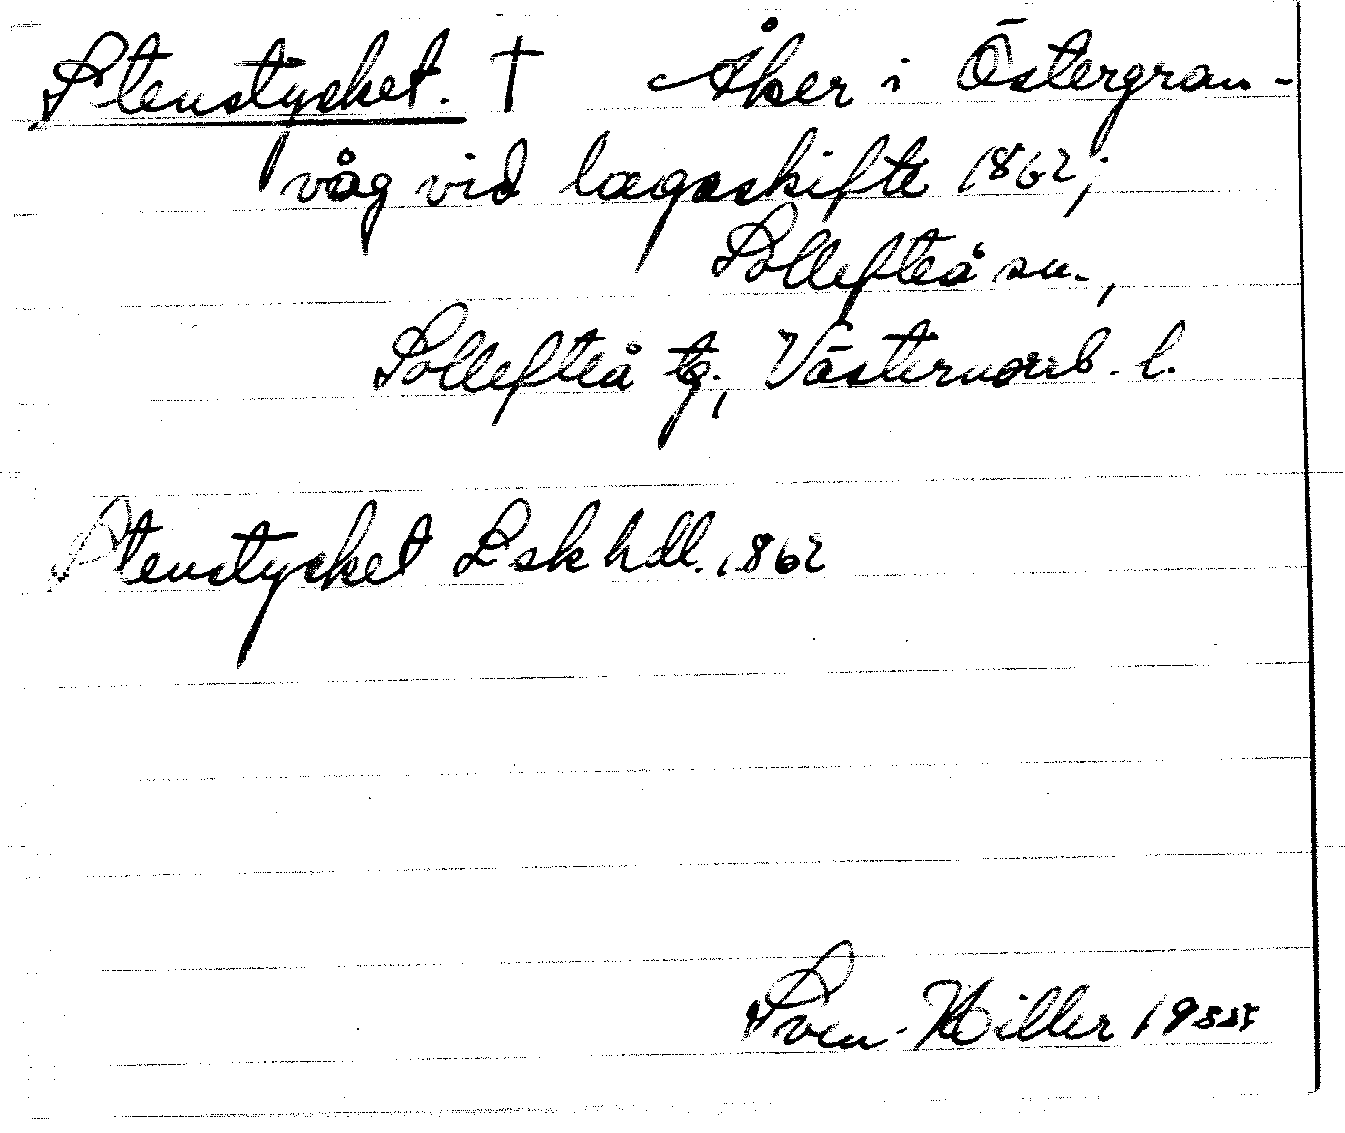 Stenstycket. † Åker i Östergran-
våg vid lagaskifte 1862;
Sollefteå sn.,
Sollefteå tg., Västernorrl. l.
Stenstycket Lskhdl. 1862
Sven Hiller